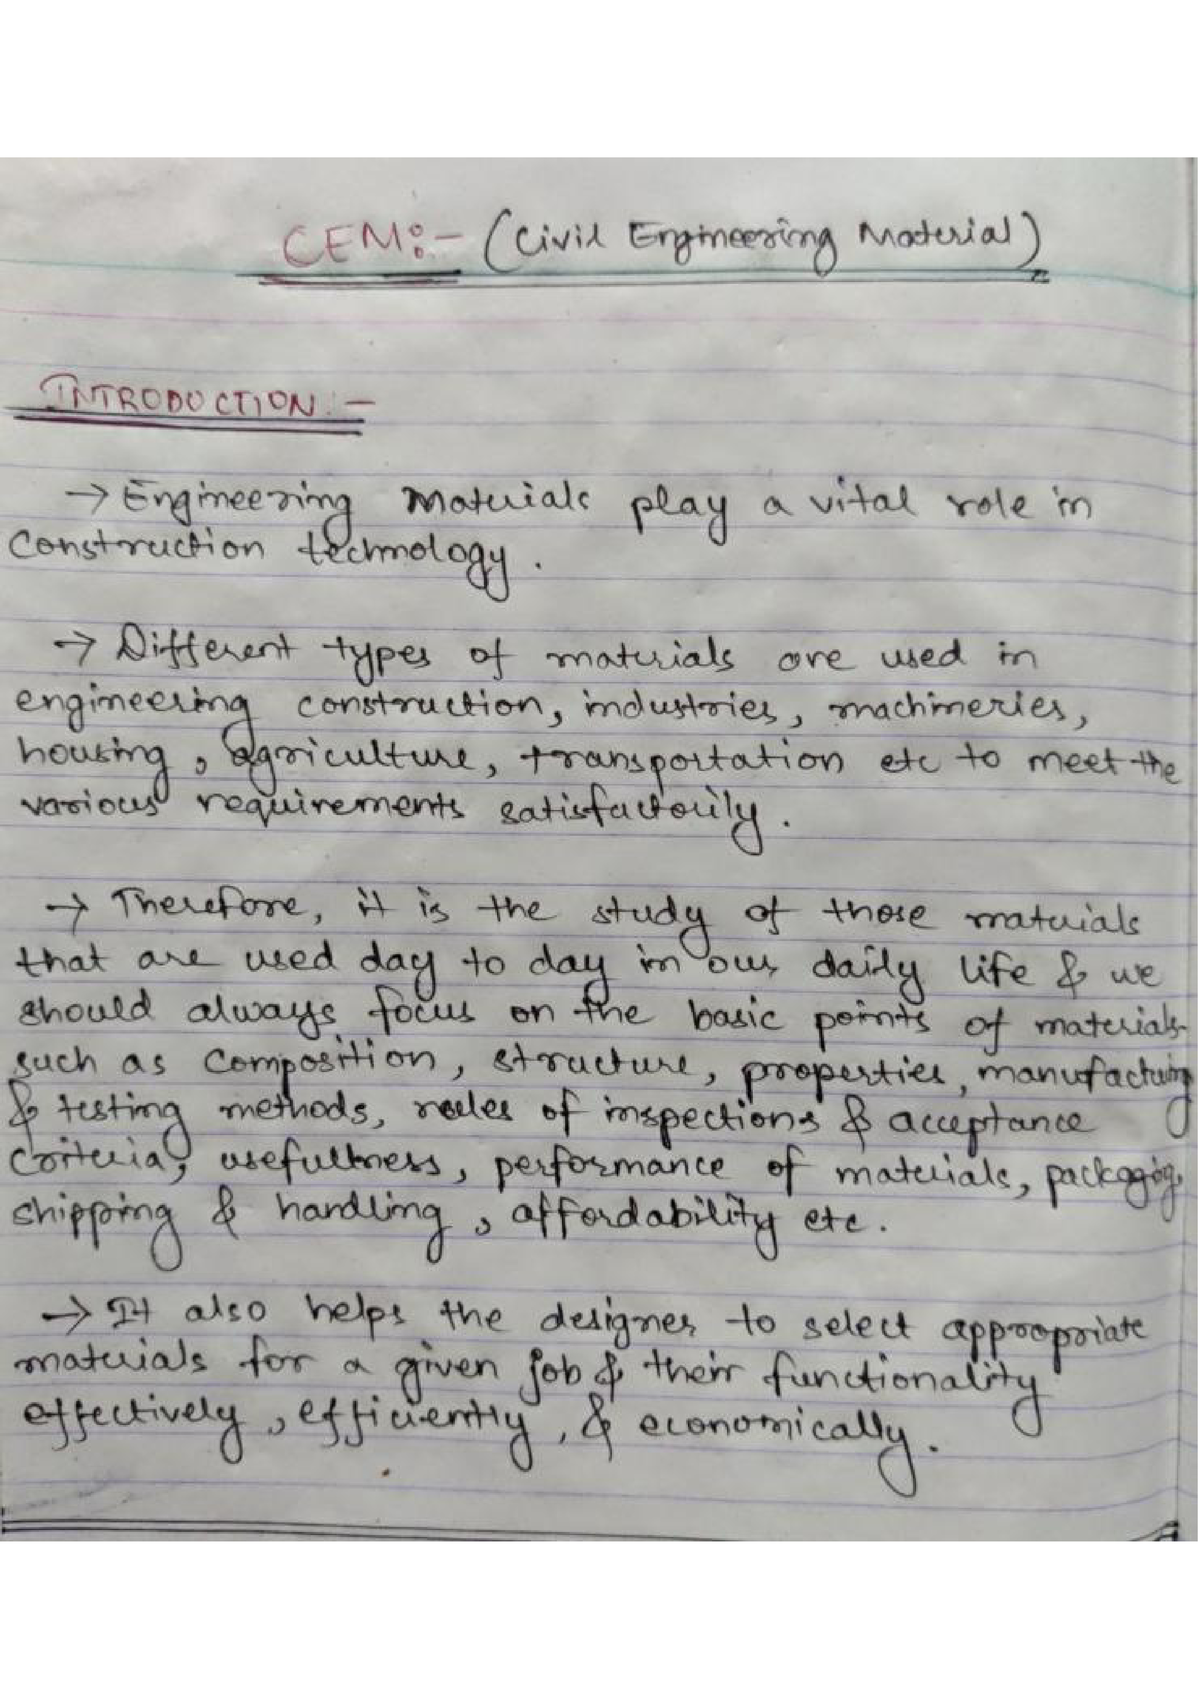 CEM:- (Civil Engineering Material)
INTRODUCTION:-
→ Engineering Materials play a vital role in
Construction technology.
→ Different types of materials are used in
engineering construction, industries, machineries,
housing, agriculture, transportation etc to meet the
various requirements satisfactorily.
→ Therefore, it is the study of those materials
that are used day to day in our daily life & we
should always focus on the basic points of materials
such as Composition, structure, properties, manufacturing
& testing methods, rules of inspections & acceptance
Criteria, usefullness, performance of materials, packaging,
shipping & handling, affordability etc.
→ It also helps the designer to select appropriate
materials for a given job & their functionality
effectively, efficiently, & economically.